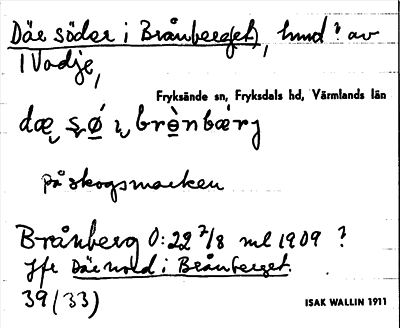 Däe söder i Brånberg(et), hund? av
Vadje,
Fryksände sn, Fryksdals hd, Värmlands län
dæ sø̀ i brɵ̀nbærj
på skogsmarken
Brånberg 0:22 7/8 ml 1909 ?
Jfr Däe nord i Brånberget.
39 (33)
ISAK WALLIN 1911